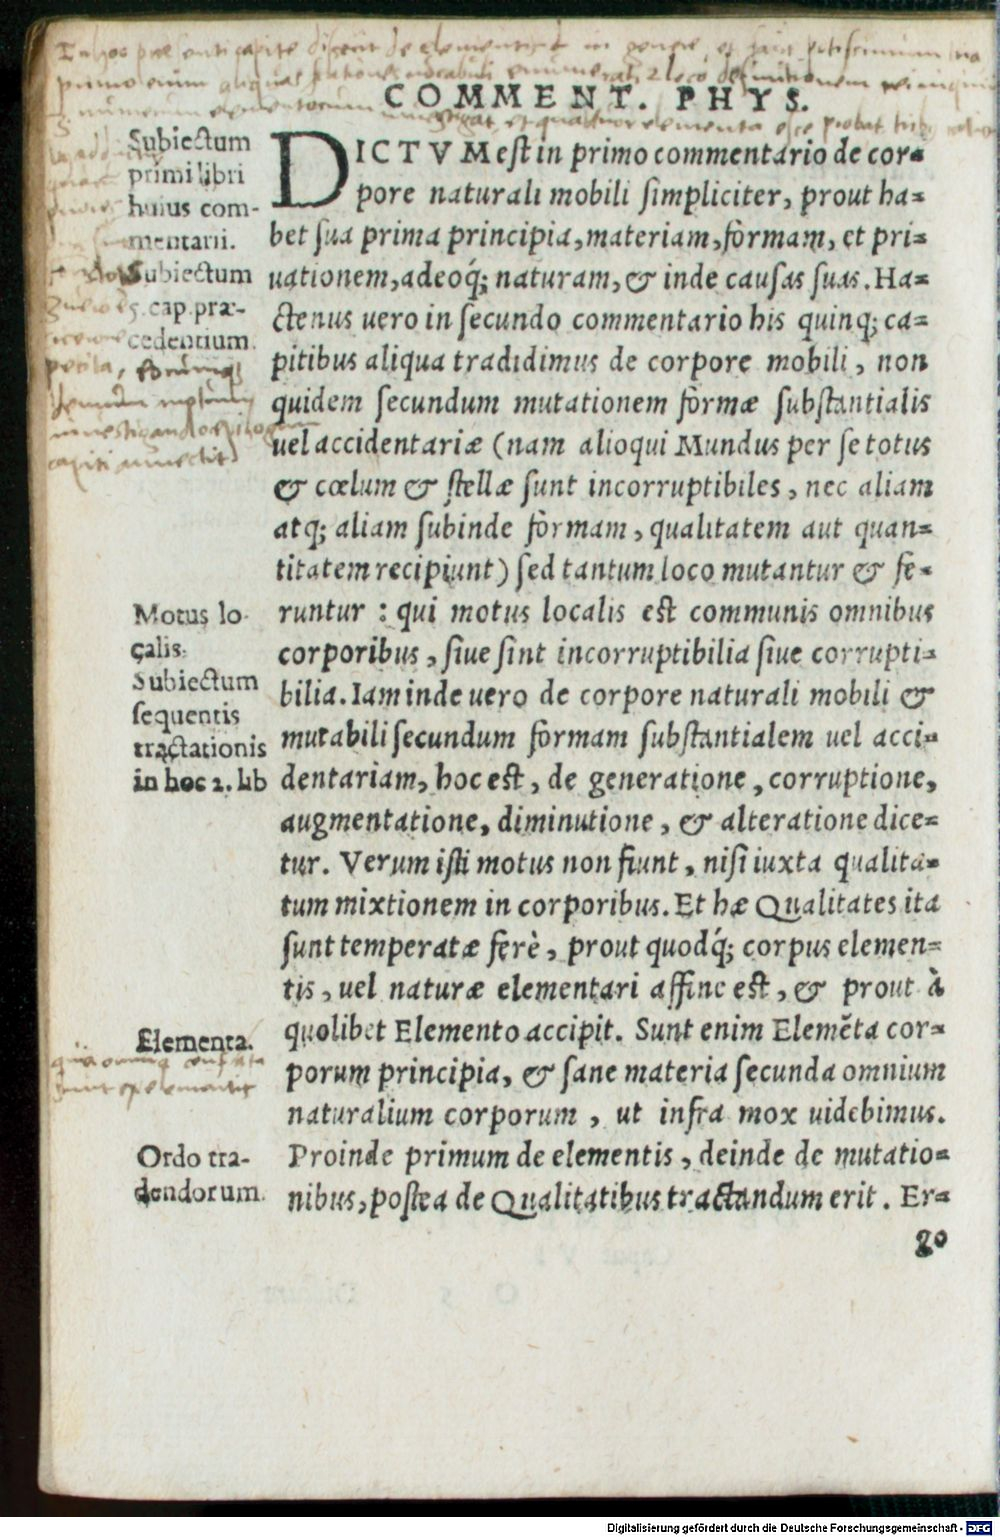 COMMENT. PHYS.
Subiectum
primi libri
huius com-
mentarii.
Subiectum
5. cap. præ-
cedentium.
DICTVM est in primo commentario de cor-
pore naturali mobili simpliciter, prout ha-
bet sua prima principia, materiam, formam, et pri-
uationem, adeoq́; naturam, & inde causas suas. Ha-
ctenus uero in secundo commentario his quinq; ca-
pitibus aliqua tradidimus de corpore mobili, non
quidem secundum mutationem formæ substantialis
uel accidentariæ (nam alioqui Mundus per se totus
& cœlum & stellæ sunt incorruptibiles, nec aliam
atq; aliam subinde formam, qualitatem aut quan-
titatem recipiunt) sed tantum loco mutantur & fe-
Motus lo-
calis.
Subiectum
sequentis
tractationis
in hoc 2. lib
runtur: qui motus localis est communis omnibus
corporibus, siue sint incorruptibilia siue corrupti-
bilia. Iam inde uero de corpore naturali mobili &
mutabili secundum formam substantialem uel acci-
dentariam, hoc est, de generatione, corruptione,
augmentatione, diminutione, & alteratione dice-
tur. Verum isti motus non fiunt, nisi iuxta qualita-
tum mixtionem in corporibus. Et hæ Qualitates ita
sunt temperatæ ferè, prout quodq́; corpus elemen-
tis, uel naturæ elementari affine est, & prout à
Elementa.
quolibet Elemento accipit. Sunt enim Elemẽta cor-
porum principia, & sane materia secunda omnium
naturalium corporum, ut infra mox uidebimus.
Ordo tra-
dendorum.
Proinde primum de elementis, deinde de mutatio-
nibus, postea de Qualitatibus tractandum erit. Er-
go
Digitalisierung gefördert durch die Deutsche Forschungsgemeinschaft - DFG